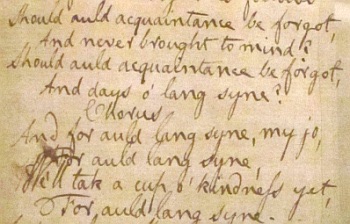 Should auld acquaintance be forgot,
And never brought to mind?
Should auld acquaintance be forgot,
And days o' lang syne?
Chorus
And for auld lang syne, my jo,
For auld lang syne,
We'll tak a cup o' kindness yet,
For auld lang syne.